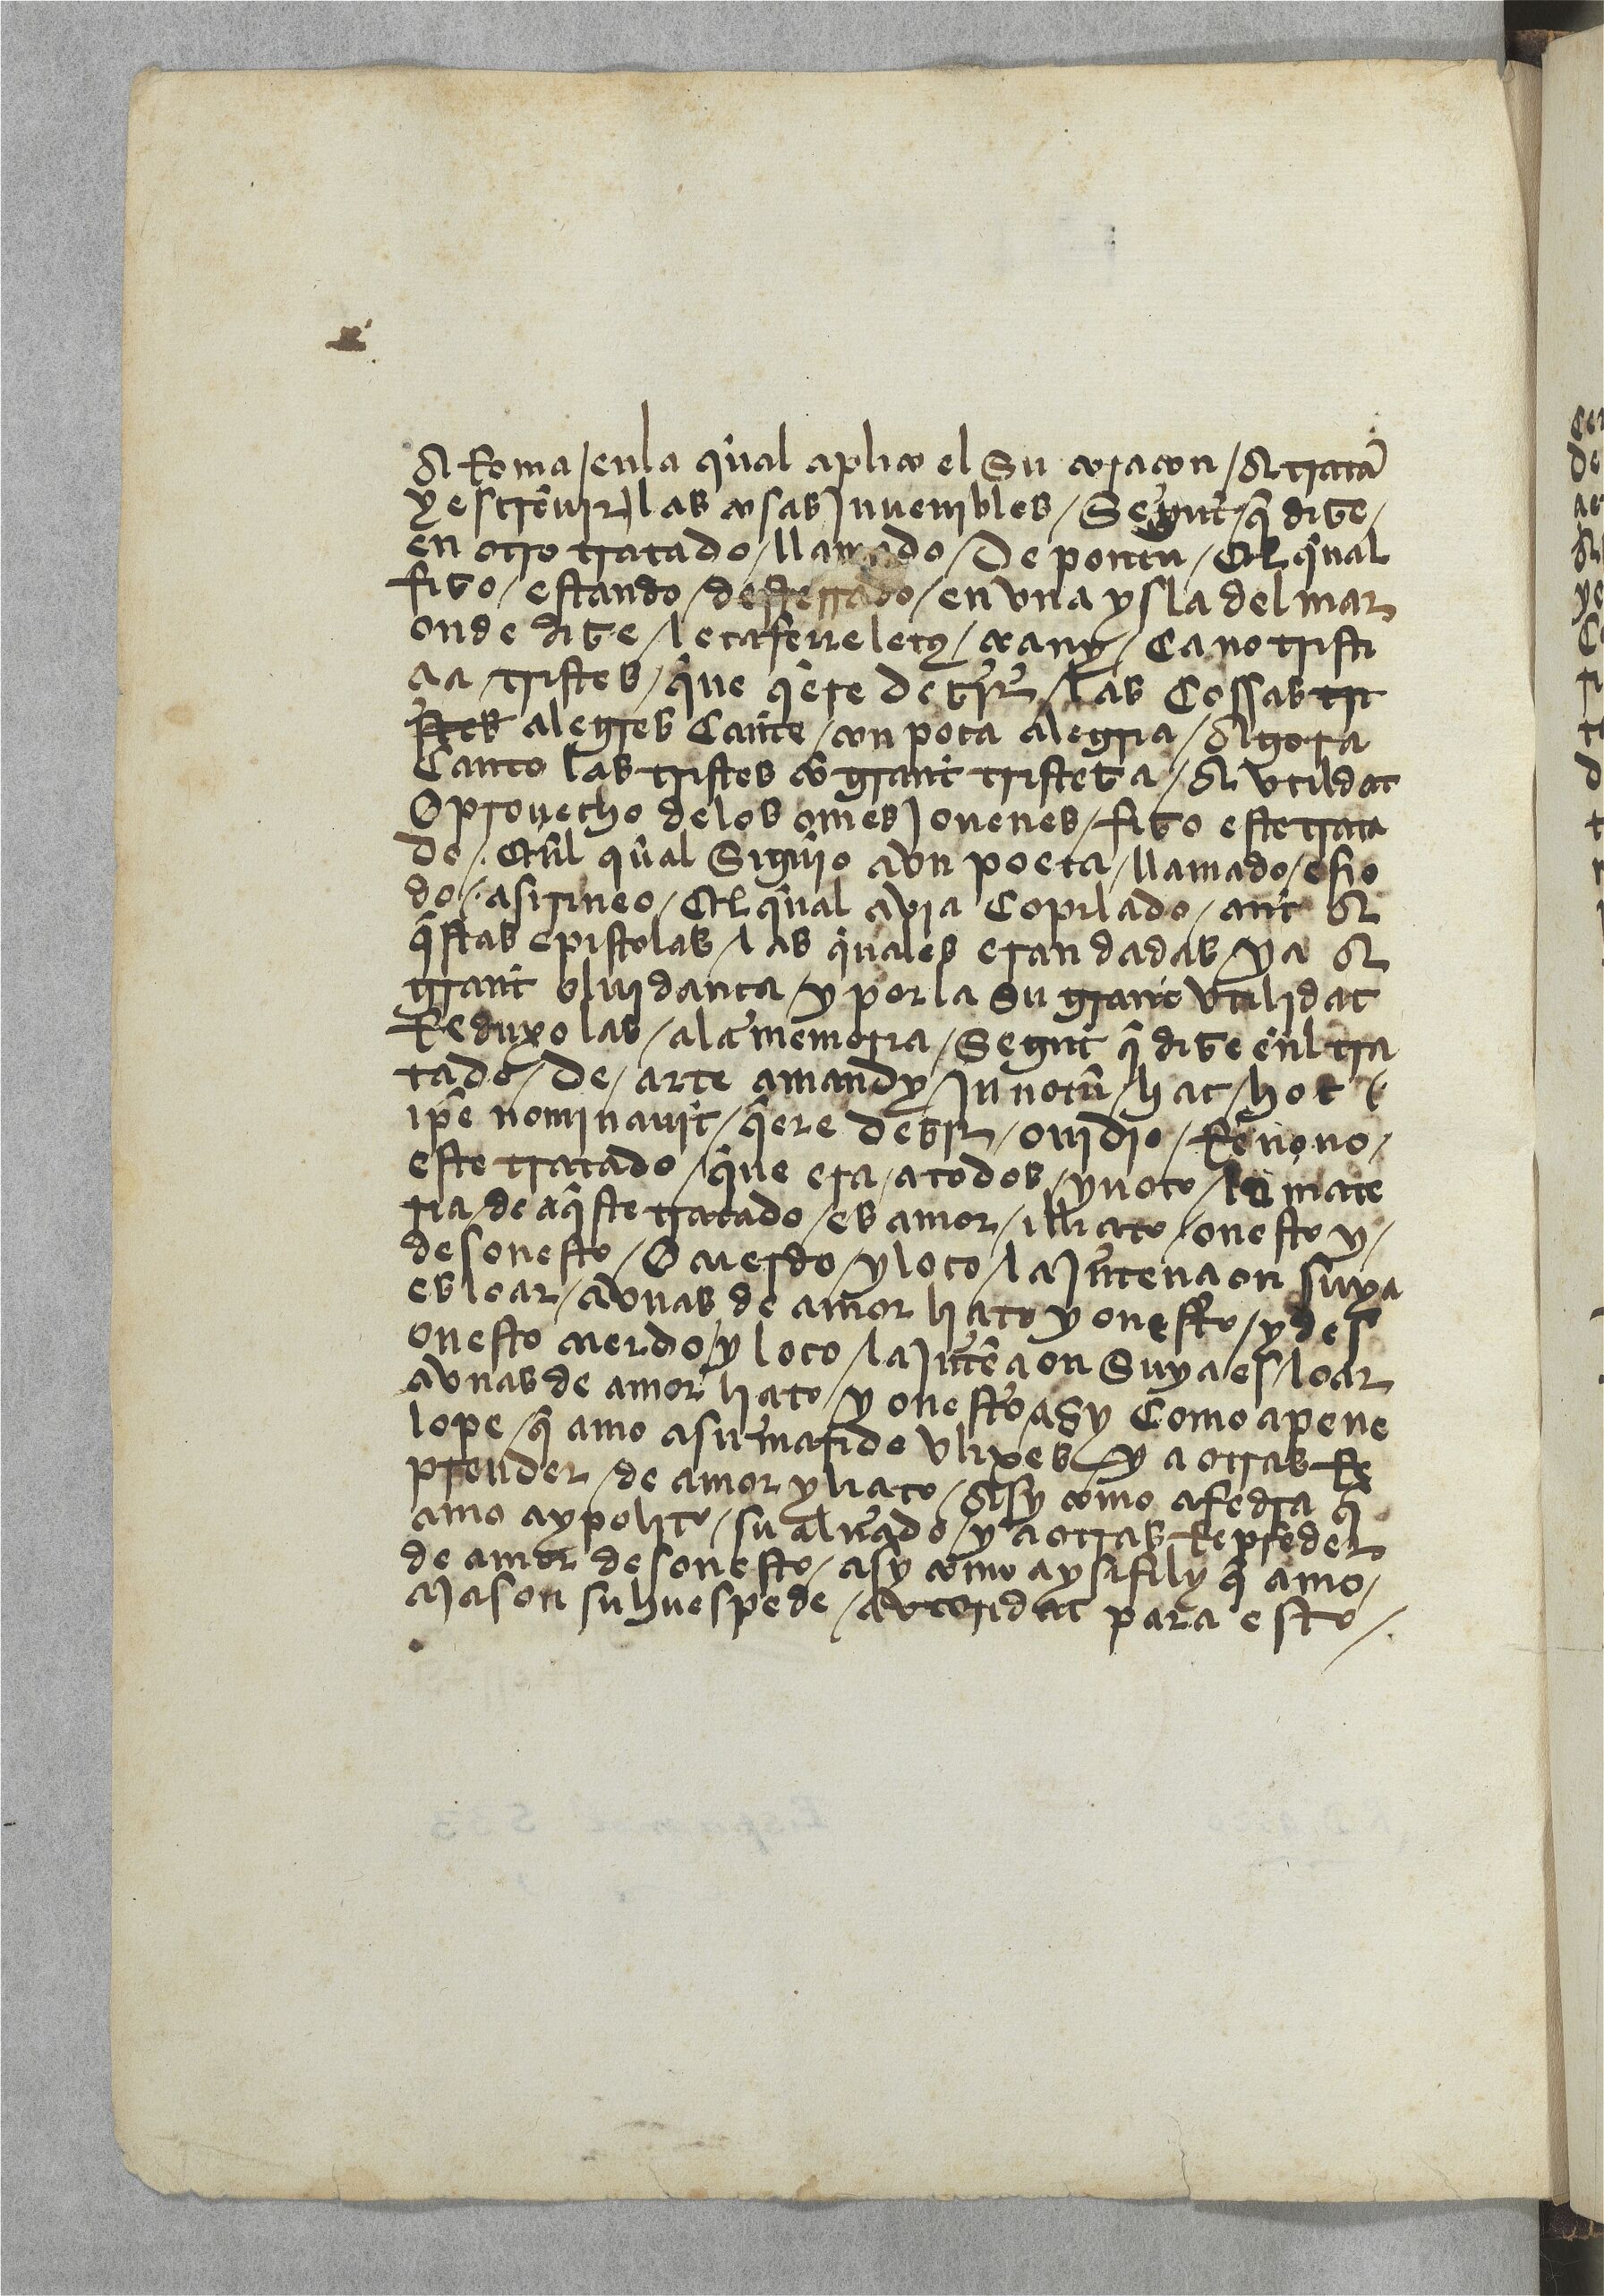 A Roma / enla qual aplico el Su coraçon / A tratar̃
y escreuir las cosas Juuenibles / Segunt / q̃ dize /
en otro tratado / llamado / De pontu / El qual
fizo / estando / desterrado / en vna ysla del mar
onde dize / leta fere letus / Cano tristi
cia / tristes / que q̃ere dezir / las Cossas tri
stes alegres Cante / con poca alegria / Agora
Canto las tristes cõ grant tristeza / A vtildat
O prouecho delos omes Jouenes / fizo este trata
do / Enl qual Siguio a vn poeta / llamado / esio
do / asirineo / El qual avia Copilado / ant A
q̃stas epistolas / las quales eran dadas ya A
grant oluidança / y por la Su grant vtilidat
Reduxo las / ala memoria / Segunt q̃ dize enl tra
tado / De / arte amandy / Jn notũ / hac / hoc /
ip̃e nominauit / q̃ere dezir / ouidio / Renouo /
este tratado / que era / a todos / ynoto / la mate
ria / de aq̃ste tratado / es amor / illiçito / onesto y /
desonesto / O cuerdo / y loco / la Jntençion suya
es loar / a vnas de amor liçito y onesto / y des
onesto cuerdo / y loco / la Jntẽçion Suya es / loar
a vnas de amor liçito / y onesto / asy Como a pene
lope / q̃ amo a su marido vlixes / y a otras Re
prender / de amor yliçito / Asy como a fedra q̃
amo a ypolito / su alnado / y a otras Reprẽder
de amor desonesto / asy como a ysifily q̃ amo /
a Jason su huespede / avtoridat para esto /